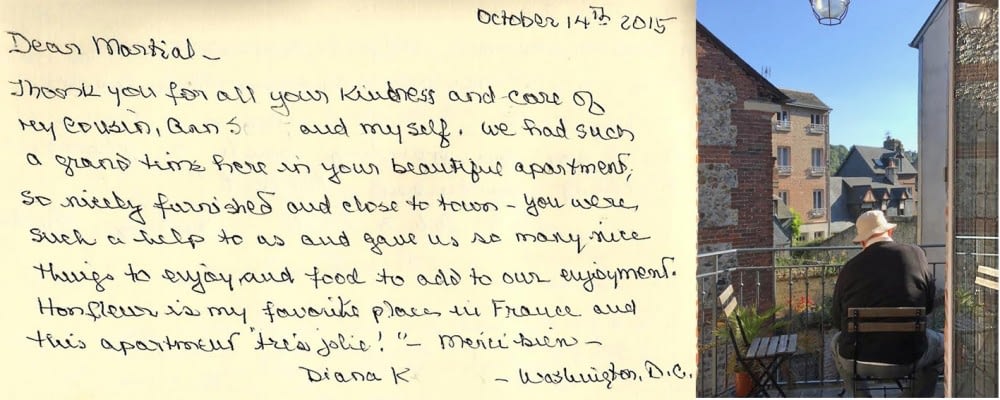 October 14TH 2015
Dear Martial -
Thank you for all your kindness and care of
my cousin, Ann S and myself. We had such
a grand time here in your beautiful apartment,
so nicely furnished and close to town - you were
such a help to us and gave us so many nice
things to enjoy and food to add to our enjoyment.
Honfleur is my favorite place in France and
this apartment "très jolie!" - Merci bien -
Diana K - Washington, D.C.